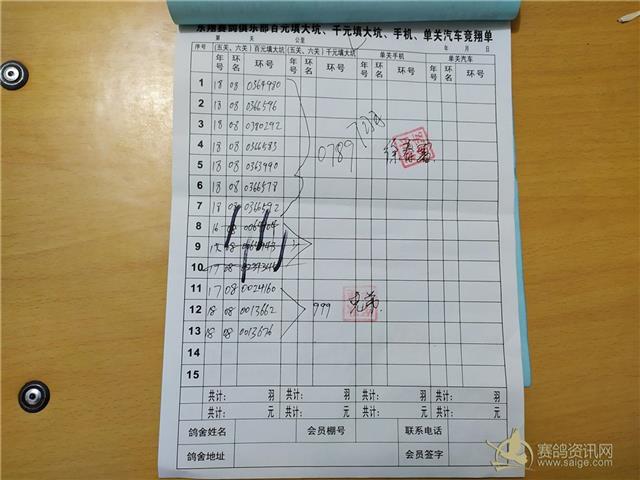 东翔赛鸽俱乐部百元填大坑、千元填大坑、手机、单关汽车竞翔单
第 关 公里 年 月 日
序号 (五关、六关)百元填大坑 (五关、六关)千元填大坑 单关手机 单关汽车
年号 环名 环号 年号 环名 环号 年号 环名 环号 年号 环名 环号
1 18 08 0364980
2 18 08 0366596
3 18 08 0380292
4 18 08 0366583
5 18 08 0363990
6 18 08 0366578
7 18 08 0366592
0789
8 16 08
9 08
10 17 08
11 17 08 0024160
12 18 08 0013662 999 兄弟
13 18 08 0013676
14
15
共计: 羽 共计: 羽 共计: 羽 共计: 羽
共计: 元 共计: 元 共计: 元 共计: 元
鸽舍姓名 会员棚号 联系电话
鸽舍地址 会员签字
赛鸽资讯网
www.saige.com